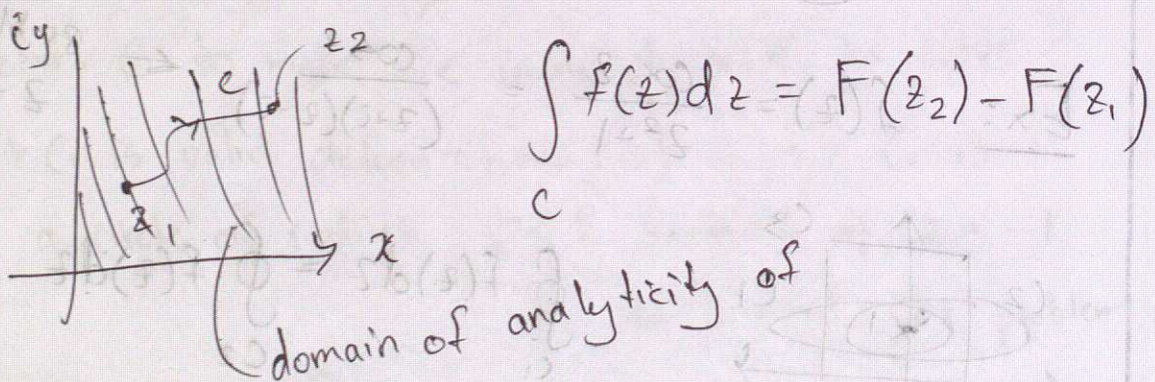 iy
z2
c
∫ f(z)dz = F(z₂) - F(z₁)
C
z₁
x
domain of analyticity of